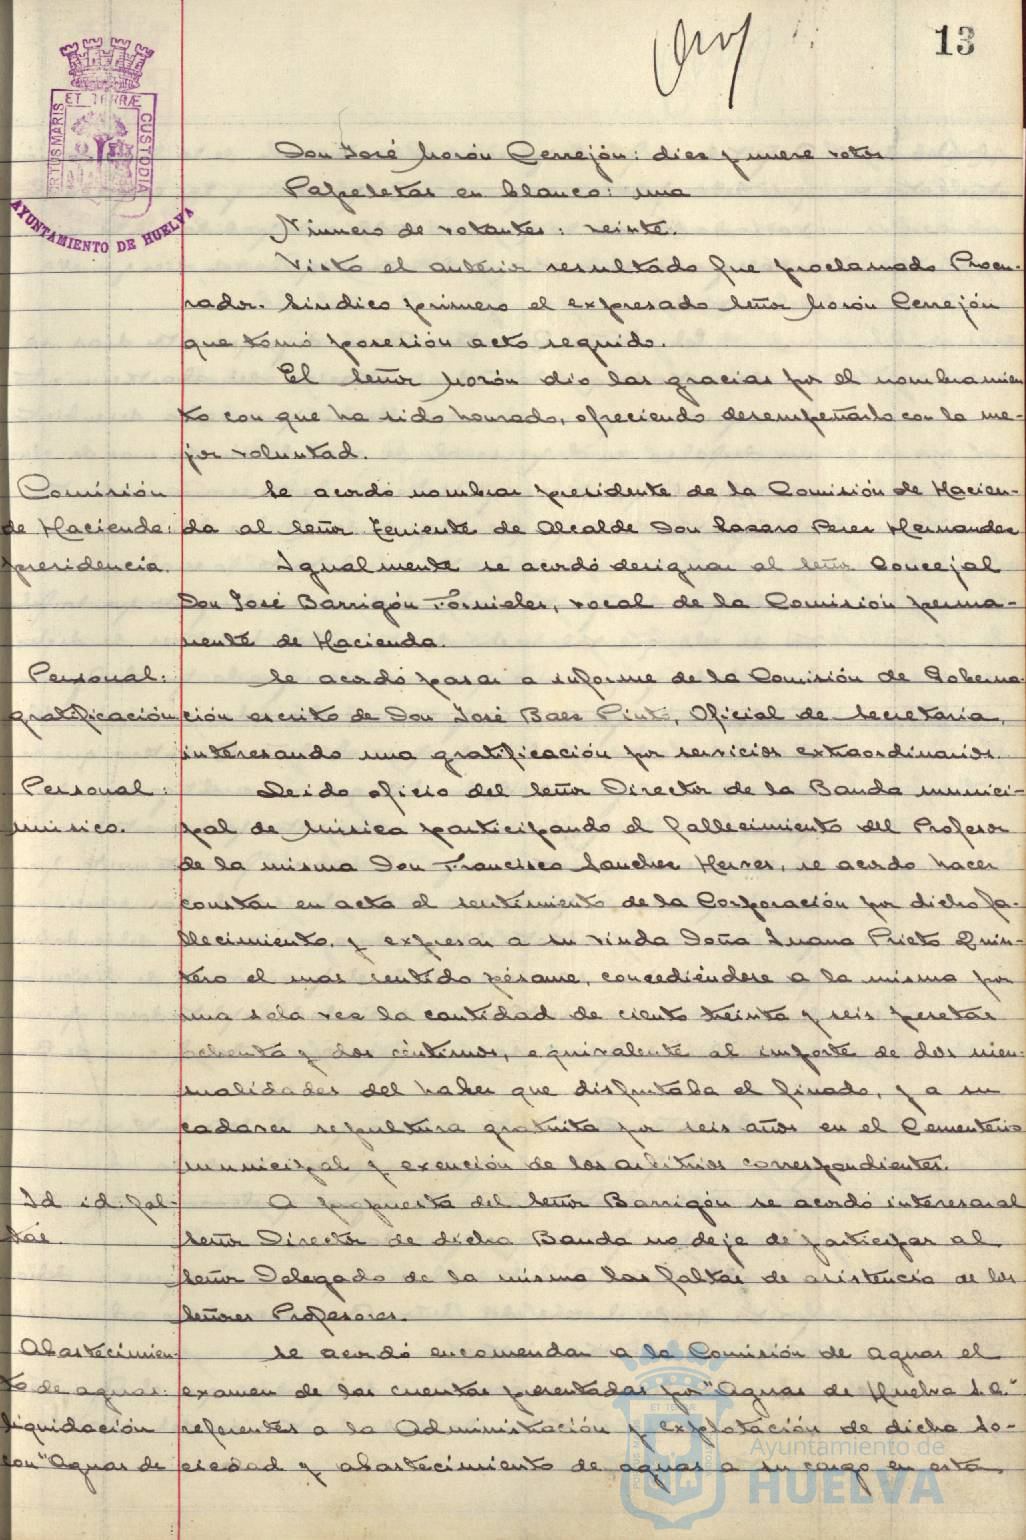 13
ET TERRÆ
CUSTODIA
PORTUS MARIS
AYUNTAMIENTO DE HUELVA
Don José Morón Cerrejón: diez y nueve votos
Papeletas en blanco: una
Número de votantes: veinte.
Visto el anterior resultado fue proclamado Procu-
rador. Síndico primero el expresado Señor Morón Cerrejón
que tomó posesión acto seguido.
El Señor Morón dio las gracias por el nombramien
to con que ha sido honrado, ofreciendo desempeñarlo con la me-
jor voluntad.
Comisión
de Hacienda:
presidencia.
Se acordó nombrar presidente de la Comisión de Hacien-
da al Señor Teniente de Alcalde Don Lazaro Perez Hernandez
Igualmente se acordó designar al Señor Concejal
Don José Barrigón Fornieles, vocal de la Comisión perma-
nente de Hacienda.
Personal:
gratificación
Se acordó pasar a informe de la Comisión de Goberna
ción escrito de Don José Baez Pinto, Oficial de Secretaria,
interesando una gratificación por servicios extraordinarios.
Personal:
músico.
Leido oficio del Señor Director de la Banda munici-
pal de Música participando el fallecimiento del Profesor
de la misma Don Francisco Sanchez Herves, se acordo hacer
constar en acta el sentimiento de la Corporación por dicho fa-
llecimiento, y expresar a su viuda Doña Juana Prieto Quin-
tero el mas sentido pésame, concediéndose a la misma por
una sola vez la cantidad de ciento treinta y seis pesetas
ochenta y dos céntimos, equivalente al importe de dos men-
sualidades del haber que disfrutaba el finado, y a su
cadaver sepultura gratuita por seis años en el Cementerio
municipal y exención de los arbitrios correspondientes.
Id id: fal-
tas.
A propuesta del Señor Barrigón se acordó interesar al
Señor Director de dicha Banda no deje de participar al
Señor Delegado de la misma las faltas de asistencia de los
Señores Profesores.
Abastecimien-
to de aguas:
liquidación
con "Aguas de
Se acordó encomendar a la Comisión de Aguas el
examen de las cuentas presentadas por "Aguas de Huelva S.A."
referentes a la Administración y explotación de dicha So-
ciedad y abastecimiento de aguas a su cargo en esta
Ayuntamiento de
HUELVA